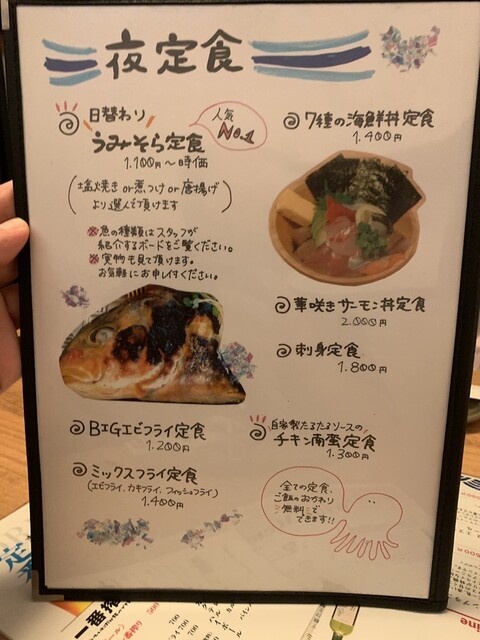 夜定食
日替わり
うみそら定食
人気
No.1
1.100円〜時価
(塩焼き or 煮つけ or 唐揚げ
より選んで頂けます)
※魚の種類はスタッフが
紹介するボードをご覧ください。
※実物も見て頂けます。
お気軽にお申し付ください。
BIGエビフライ定食
1.200円
ミックスフライ定食
(エビフライ、カキフライ、フィッシュフライ)
1.400円
7種の海鮮丼定食
1.400円
華咲きサーモン丼定食
2.000円
刺身定食
1.800円
自家製たるたるソースの
チキン南蛮定食
1.300円
全ての定食、
ご飯のおかわり
無料
できます!!
一番搾
500